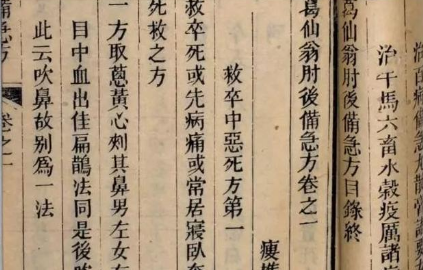 治百病備急丸散膏諸要
治牛馬六畜水穀疫厲諸
葛仙翁肘後備急方目錄終
瘦樵
葛仙翁肘後備急方卷之一
救卒中惡死方第一
救卒死或先病痛或常居寢臥奄
死救之方
一方取蔥黃心刺其鼻男左女右
目中血出佳扁鵲法同是後
此云吹鼻故別爲一法
備急方 卷之一